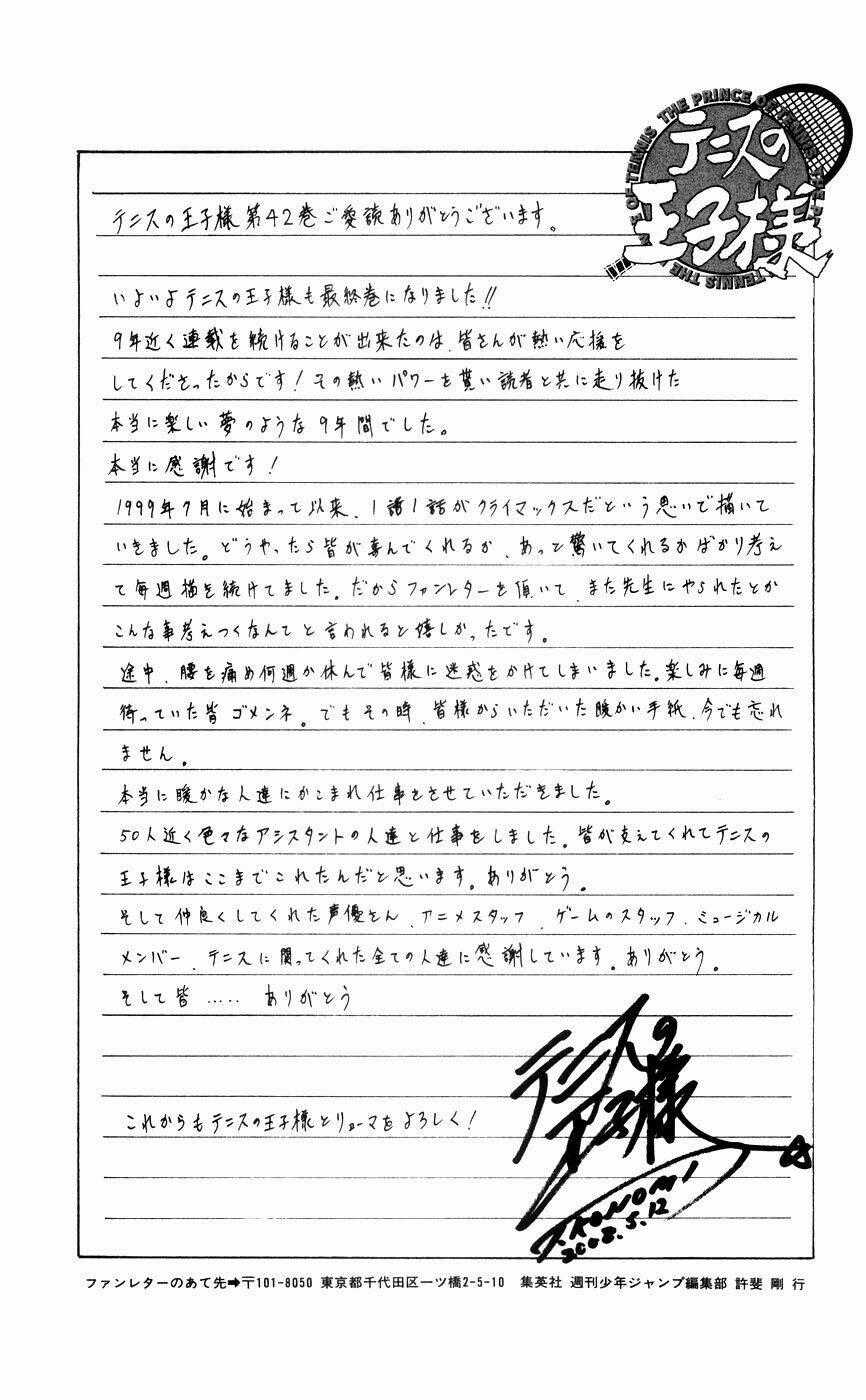 THE PRINCE OF TENNIS THE PRINCE OF TENNIS THE
テニスの
王子様
テニスの王子様第42巻ご愛読ありがとうございます。
いよいよテニスの王子様も最終巻になりました!!
9年近く連載を続けることが出来たのは、皆さんが熱い応援を
してくださったからです!その熱いパワーを貰い読者と共に走り抜けた
本当に楽しい夢のような9年間でした。
本当に感謝です!
1999年7月に始まって以来、1話1話がクライマックスだという思いで描いて
いきました。どうやったら皆が喜んでくれるか、あっと驚いてくれるかばかり考え
て毎週描き続けてました。だからファンレターを頂いて、また先生にやられたとか
こんな事考えつくなんてと言われると嬉しかったです。
途中、腰を痛め何週か休んで皆様に迷惑をかけてしまいました。楽しみに毎週
待っていた皆ゴメンネ。でもその時、皆様からいただいた暖かい手紙、今でも忘れ
ません。
本当に暖かな人達にかこまれ仕事をさせていただきました。
50人近く色々なアシスタントの人達と仕事をしました。皆が支えてくれてテニスの
王子様はここまでこれたんだと思います。ありがとう。
そして仲良くしてくれた声優さん、アニメスタッフ、ゲームのスタッフ、ミュージカル
メンバー、テニスに関ってくれた全ての人達に感謝しています。ありがとう。
そして皆‥‥‥ ありがとう
これからもテニスの王子様とリョーマをよろしく!
テニスの
王子様
T.KONOMI
2008.5.12
ファンレターのあて先➡〒101-8050 東京都千代田区一ツ橋2-5-10 集英社 週刊少年ジャンプ編集部 許斐 剛 行